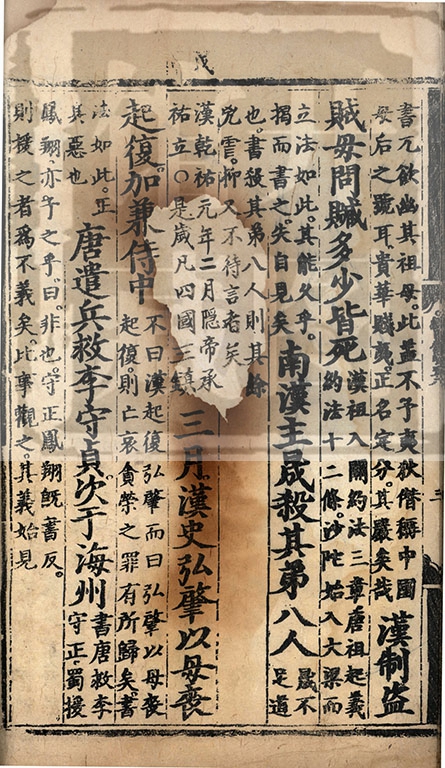 書兀欲幽其祖母。此蓋不予夷狄僭稱中國
母后之號耳。貴華賤夷。正名定分。其嚴矣哉
漢制盜
賊毋問贓多少皆死
漢祖入關約法三章。唐祖起義
約法十二條。沙陀始入大梁而
立法如此。其能久乎。
揭而書之。失自見矣
南漢主晟殺其弟八人
晟不
足道
也。書殺其弟八人則其餘
抑又不待言者矣
漢乾祐元年二月隱帝承
祐立〇是歲凡四國三鎮
三月。漢史弘肇以母喪
起復。加兼侍中
不曰漢起復弘肇而曰弘肇以母喪
起復。則亡哀貪榮之罪有所歸矣。書
法如此。正
其惡也
唐遣兵救李守貞次于海州
書唐救李
守正。蜀援
鳳翔。亦予之乎。曰。非也。守正鳳翔旣書反。
則援之者爲不義矣。此事觀之。其義始見